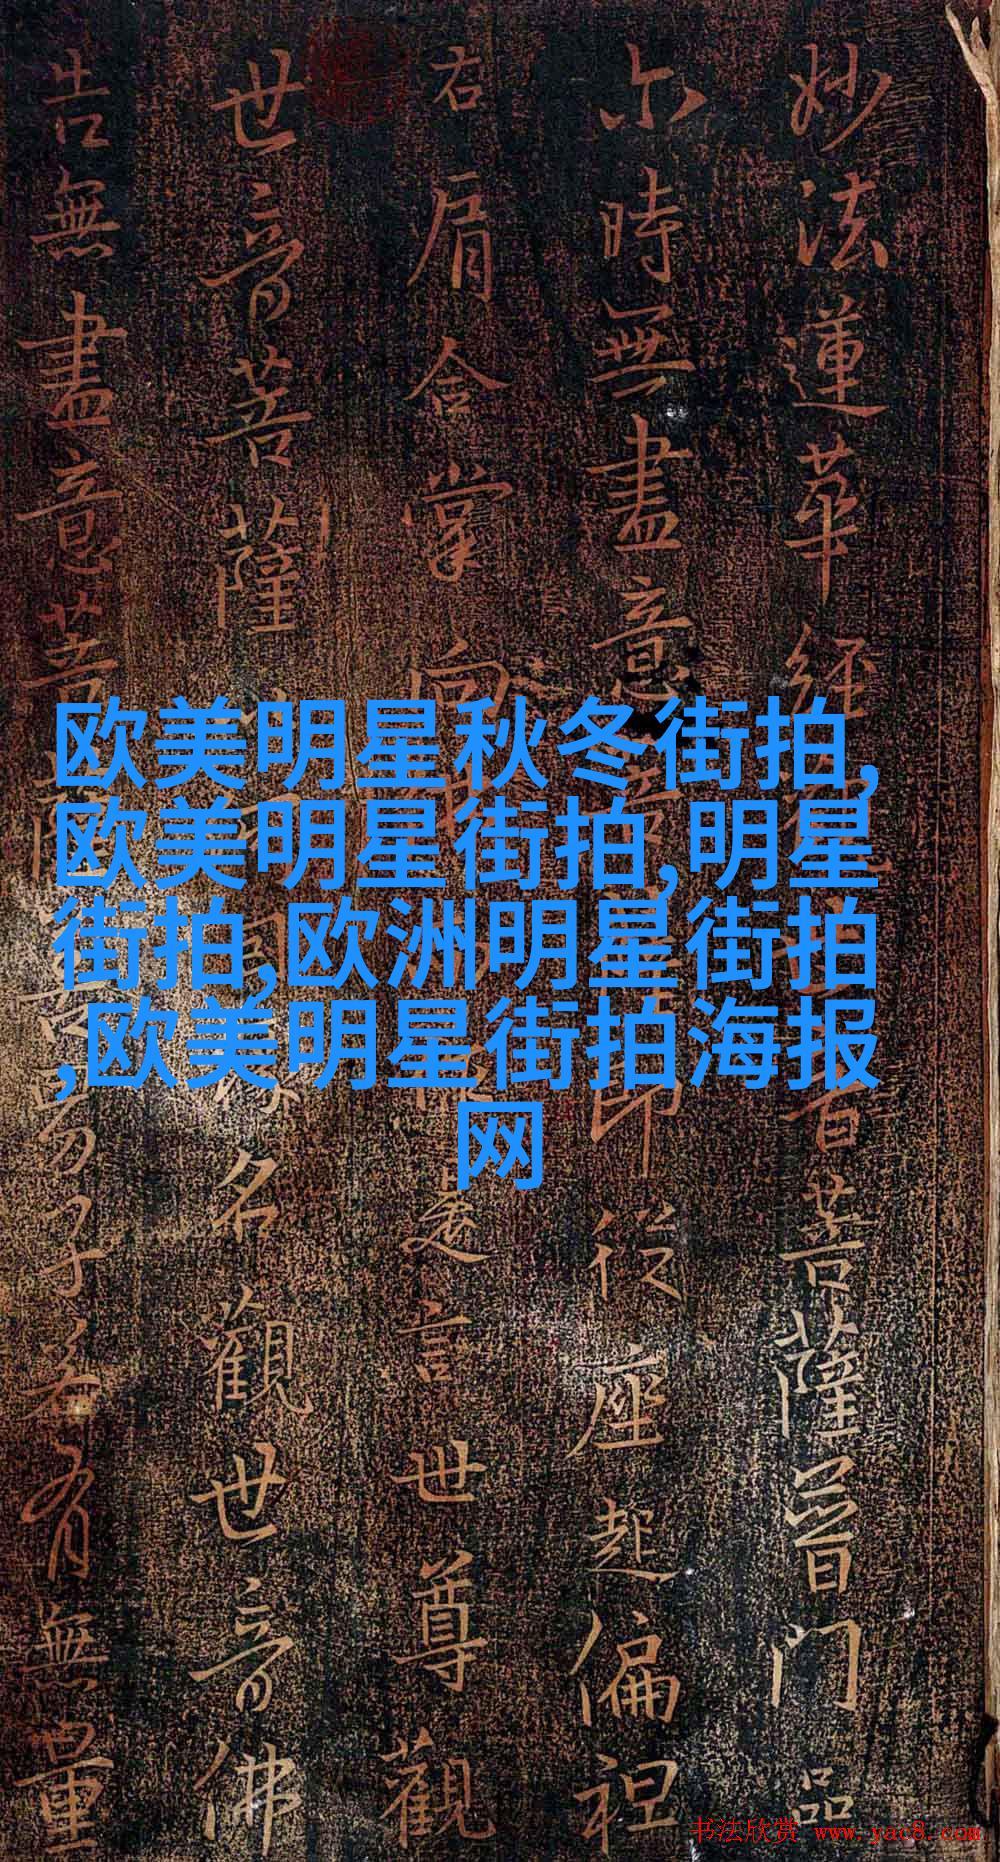 妙法蓮華經音菩薩普門品
尒時無盡意菩薩即從座起偏袒
右肩合掌向是言世尊觀
世音菩薩緣名觀世音佛
告無盡意菩薩善男子若有無量
欧美明星秋冬街拍,
欧美明星街拍,明星
街拍,欧洲明星街拍
,欧美明星街拍海报
网
书法欣赏 www.yac8.com